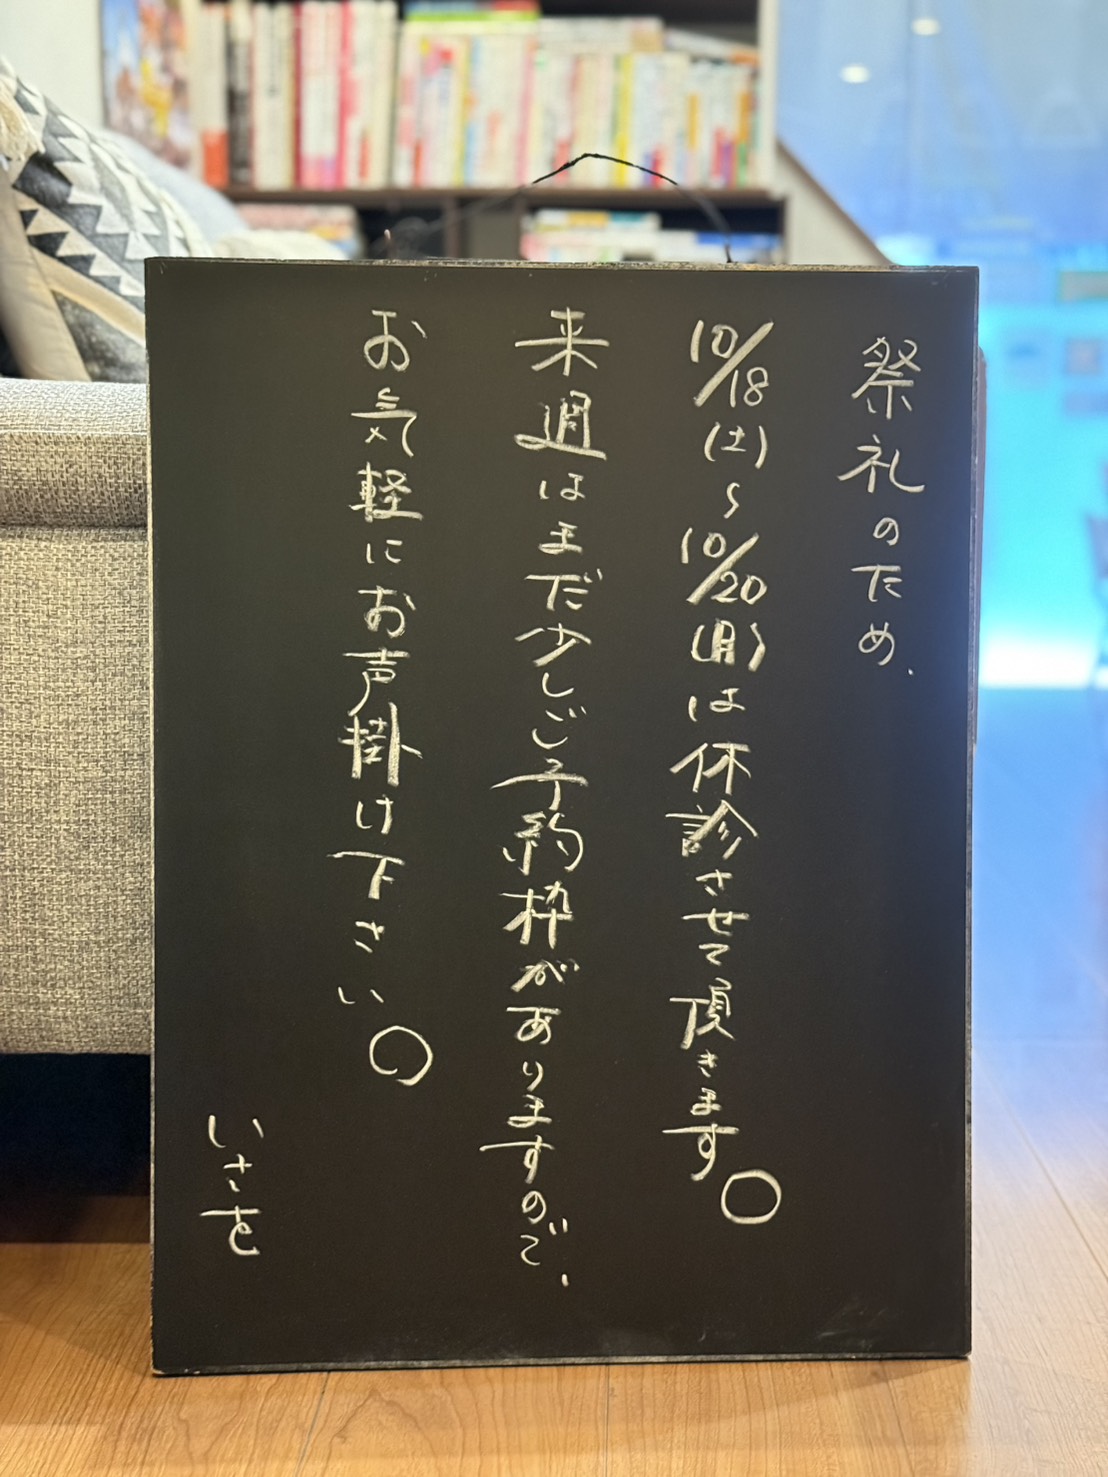 祭礼のため、
10/18(土)〜10/20(月)は休診させて頂きます。
来週はまだ少しご予約枠がありますので、
お気軽にお声掛け下さい。
いさを